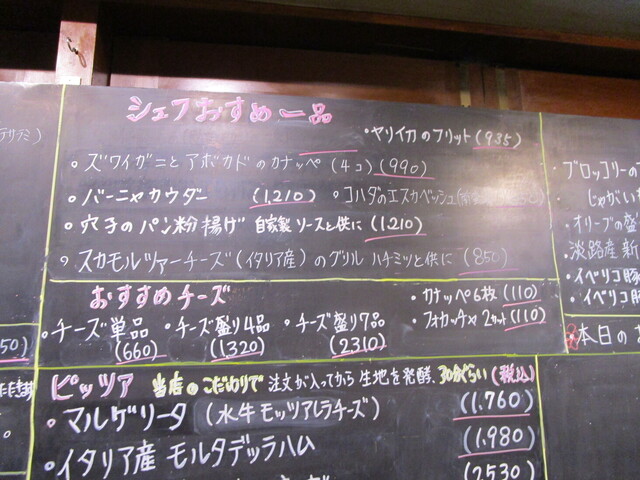 シェフおすすめ一品
・ヤリイカのフリット(935)
・ズワイガニとアボカドのカナッペ(4コ)(990)
・バーニャカウダー (1,210) ・コハダのエスカベッシュ
・穴子のパン粉揚げ 自家製ソースと供に(1,210)
・スカモルツァーチーズ(イタリア産)のグリル ハチミツと供に(850)
おすすめチーズ
・カナッペ6枚(110)
・フォカッチャ2カット(110)
・チーズ単品 (660)
・チーズ盛り4品 (1320)
・チーズ盛り7品 (2310)
ピッツァ 当店のこだわりで 注文が入ってから生地を発酵、30分ぐらい(税込)
・マルゲリータ(水牛モッツアレラチーズ) (1.760)
・イタリア産 モルタデッラハム (1.980)
(2.530)
・ブロッコリーの
じゃがい
・オリーブの盛
淡路産 新
・イベリコ豚
・イベリコ豚
本日の
50)